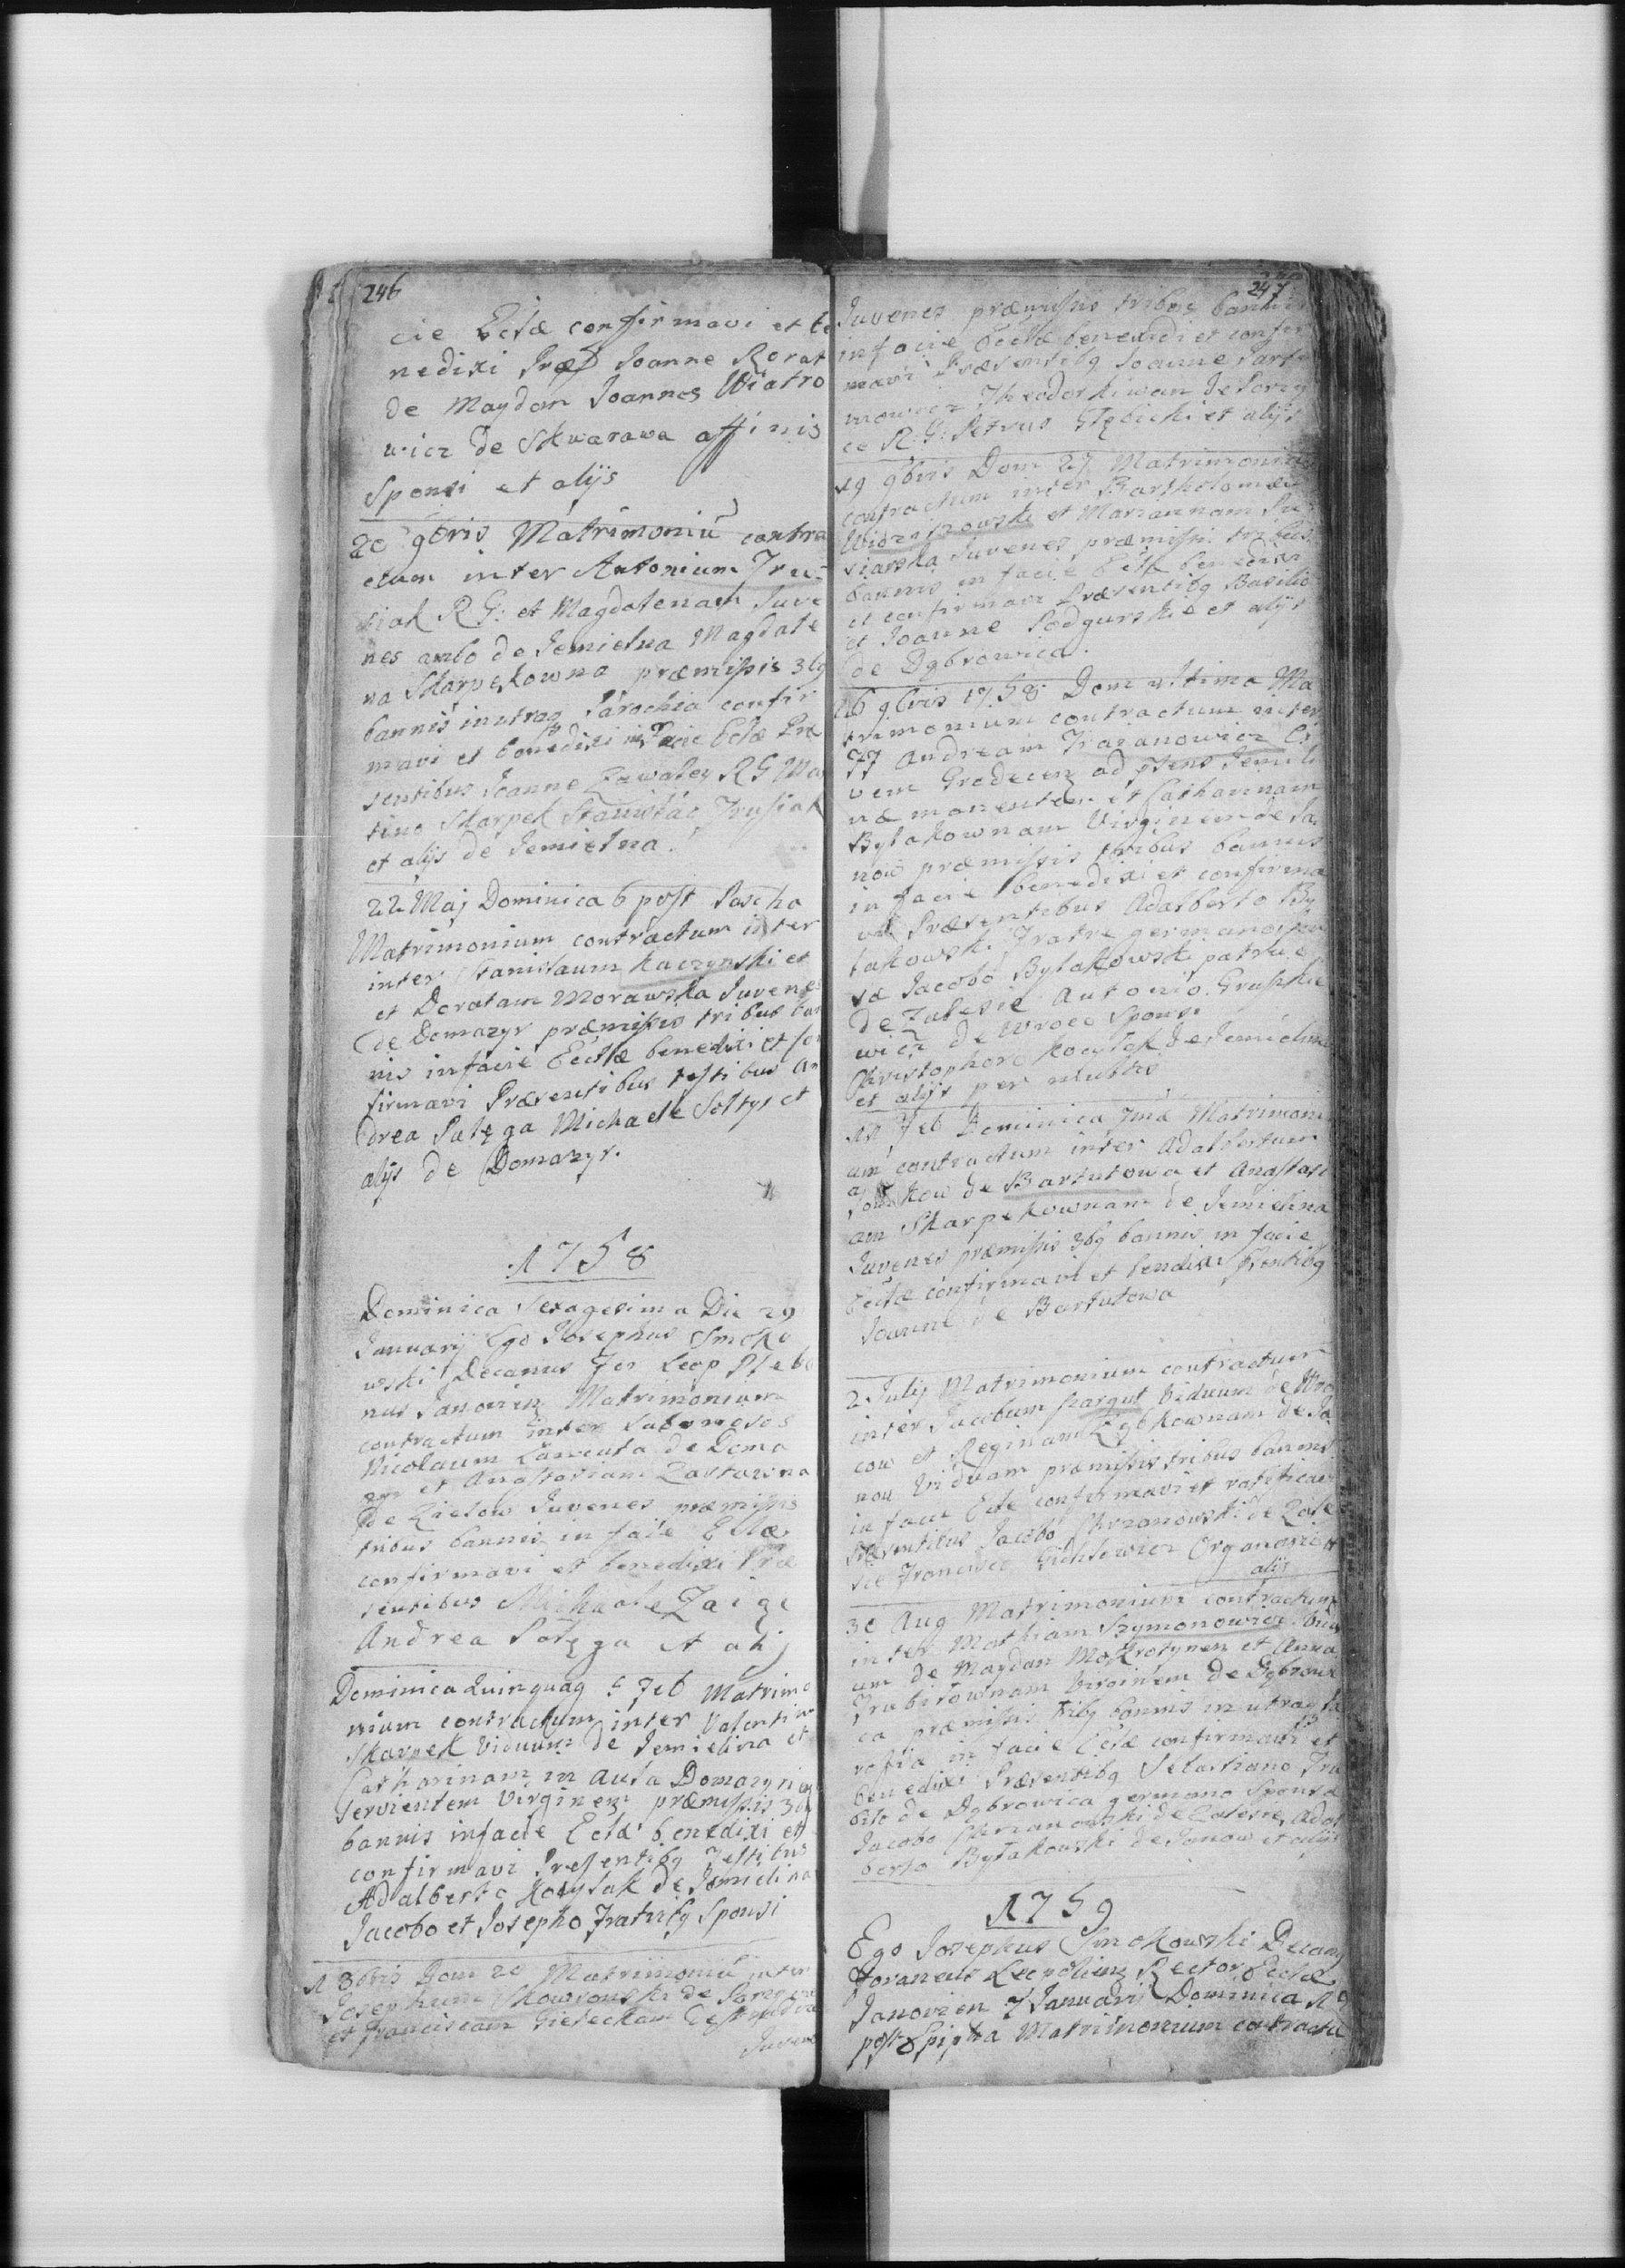 246
cie Ectæ confirmavi et be
nedixi Præs Joanne Rorat
de Maydan Joannes Wiatro
wicz de Skwarawa affinis
Sponsi et alijs
20 9bris Matrimoniu contra
ctum inter Antonium Tru
siak R G: et Magdalenam Juve
nes ambo de Jemielna Magdale
na Skarpekowna præmissis 3bq
bannis in utraq Parochia confir
mavi et benedixi in facie Ectæ Præ
sentibus Joanne Zawaley R G Mar
tino Skarpek Stanislao Trusiak
et alijs de Jemielna
22 Maj Dominica 6 post Pascha
Matrimonium contractum inter
inter Stanislaum Kaczynski et
et Dorotam Morawska Juvenes
de Domazyr præmissis tribus ban
nis in facie Ecctæ benedixi et con
firmavi Præsentibus testibus An
drea Patęga Michaele Soltys et
alijs de Domazyr.
1758
Dominica Sexagesima Die 29
Januarij Ego Josephus Smoko
wski Decanus For Leop Pleba
nus Janovien Matrimonium
contractum inter Laboriosos
Nicolaum Lancuta de Doma
zyr et Anastasiam
de Juvenes præmissis
tribus bannis in facie Ectæ
confirmavi et benedixi Præ
sentibus Michaele
Andrea Patęga et alij
Dominica Quinquag 5 Feb Matrimo
nium contractum inter Valentinu
Skarpek Viduum de Jemielina et
Catharinam in Aula Domazyrien
servientem Virginem præmissis 3bq
bannis in facie Ectæ benedixi et
confirmavi Presentibq Testibus
Adalberto Kocylak de Jemielina
Jacobo et Josepho Fratribq Sponsi
1 8bris Dom 20 Matrimoniu inter
Josephum Skowronski de
et Franciscam
Juvene
247
Juvenes præmissis tribq bannis
in facie Ecctæ benedixi et confir
mavi Præsentibq Joanne
Theodor
ce R: G: Petrus Głębicki et alijs
9bris Dom 27 Matrimonium
contractum inter Bartholomæu
et Mariannam
Juvenes præmissi tribus
bannis in facie Ectæ benedixi
et confirmavi Præsentibq Basilio
et Joanne Podgurskie et alijs
de Dąbrowica.
26 9bris 1758 Dom ultima Ma
trimonium contractum inter
FF Andream Ci
vem Grodecen ad præsens Jemieli
næ manentem et Catharinam
Bylakownam Virginem de Ja
now præmissis tribus bannis
in facie benedixi et confirma
vi Præsentibus Adalberto By
lakowski Fratre germano spon
sæ Jacobo Bylakowski patrue
de Zalesie Antonio
wicz de Wroco Sponsi
Christophoro Kocylak de Jemielina
et alijs per multis
Feb Dominica Matrimoni
um contractum inter Adalbertum
de Bartatowa et Anastasi
am Skarpekownam de Jemielina
Juvenes præmissis 3bq bannis in facie
Ecctæ confirmavi et bendixi Psentibq
Joanne de Bartatowa
2 Julij Matrimonium contractum
inter Jacobum Viduum de Wro
cow et Reginam de Ja
now Viduam præmissis tribus bannis
in facie Ecte confirmavi et ratificavi
Præsentibus Jacobo Skrzanowski de Zale
sie Francisco Organario et
alijs
30 Aug Matrimonium contractum
inter Mathiam Szymonowicz Vidu
um de Maydan Mokrotynen et Annam
Trubitownam Virginem de Dąbrowi
ca præmissis tribq bannis in utraq Pa
rofia in facie Ectæ confirmavi et
benedixi Præsentibq Sebastiano Tru
bito de Dąbrowica germano Sponsæ
Jacobo Skrzanowski de Zalesie, Adal
berto Bylakowski de Janow et alijs
1759
Ego Josephus Smokowski Decanq
Foraneus Leopolien Rector Ecclæ
Janovien 7 Januarij Dominica 1
post Epipha Matrimonium contractu